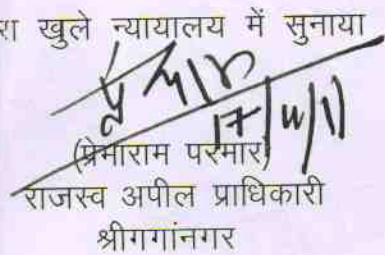 खुले न्यायालय में सुनाया
(प्रेमाराम परमार)
राजस्व अपील प्राधिकारी
श्रीगगांनगर